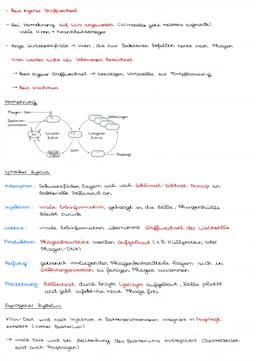 - kein eigener Stoffwechsel
- Bei Vermehrung auf Wirt angewiesen (Wirtszelle geht meistens zugrunde)
viele Viren = Krankheitserreger
- enge Wirtsspezifität → Viren, die nur Bakterien befallen nennt man Phagen
Viren werden nicht als Lebewesen bezeichnet
→ kein eigener Stoffwechsel → benötigen Wirtszelle zur Fortpflanzung
→ kein Wachstum
Vermehrung
Phagen-DNA
Lytischer Zyklus
Lysogener Zyklus
Prophage
Lytischer Zyklus
Adsorption: Schwanzfäden lagern sich nach Schlüssel-Schloss-Prinzip an
bakterielle Zellwand an
Injektion: virale Erbinformation gelangt in die Zelle, Phagenhülle
bleibt zurück
Latenz: virale Erbinformation übernimmt Stoffwechsel der Wirtszelle
Produktion: Phagenbausteine werden aufgebaut (z.B. Hüllproteine, oder
Phagen-DNA)
Reifung: getrennt vorliegende Phagenbestandteile lagern sich in
Selbstorganisation zu fertigen Phagen zusammen
Freisetzung: Zellwand durch Enzym Lysozym aufgelöst, Zelle platzt
und gibt infektiöse neue Phage frei
Lysogener Zyklus
Virus-DNA wird nach Injektion in Bakterienchromosom integriert → Prophage
→ virale DNA wird bei Zellteilung des Bakteriums mitkopiert